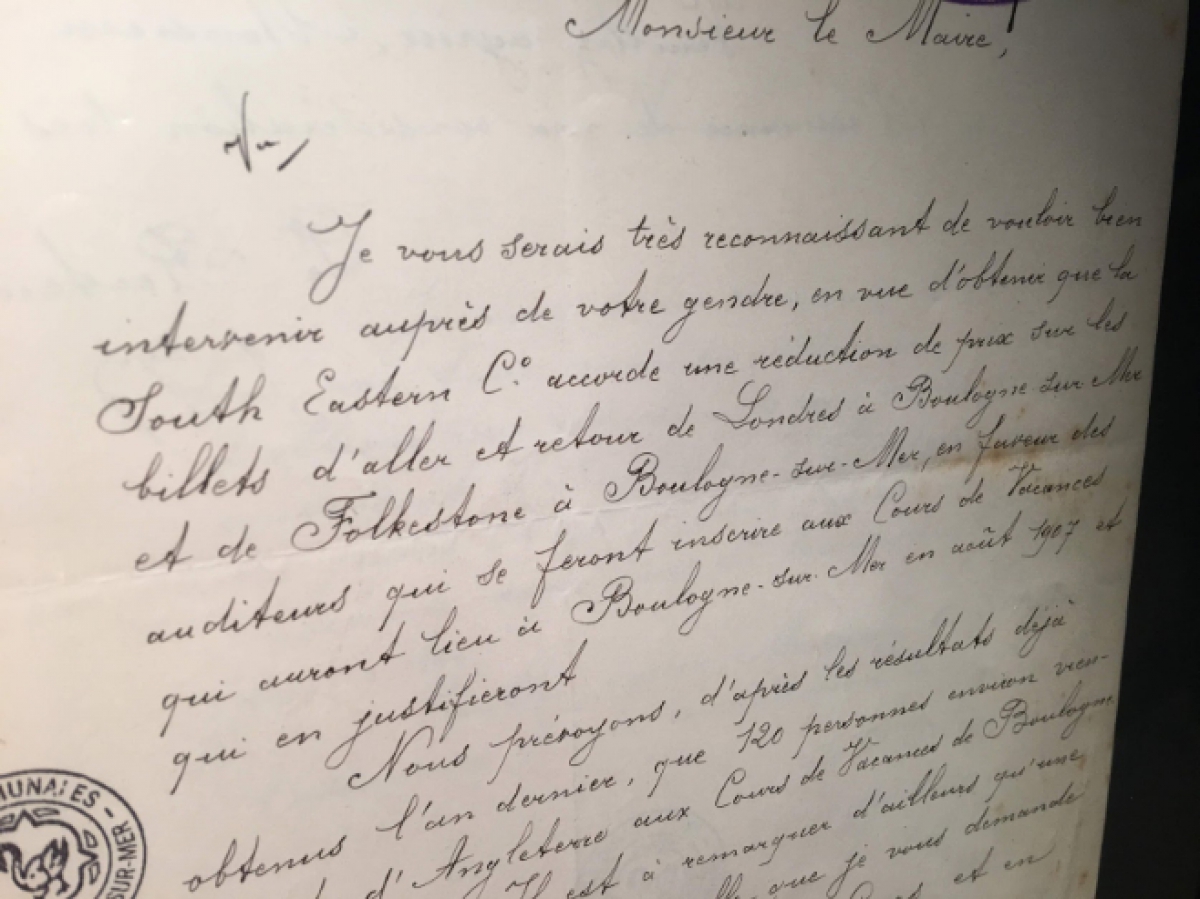 Monsieur le Maire,
Je vous serais très reconnaissant de vouloir bien
intervenir auprès de votre gendre, en vue d'obtenir que la
South Eastern C° accorde une réduction de prix sur les
billets d'aller et retour de Londres à Boulogne-sur-Mer
et de Folkestone à Boulogne-sur-Mer, en faveur des
auditeurs qui se feront inscrire aux Cours de Vacances
qui auront lieu à Boulogne-sur-Mer en août 1907 et
qui en justifieront
Nous prévoyons, d'après les résultats déjà
obtenus l'an dernier, que 120 personnes environ vien-
d'Angleterre aux Cours de Vacances de Boulogne
Il est à remarquer d'ailleurs qu'une
que je vous demande
et en
SUR-MER